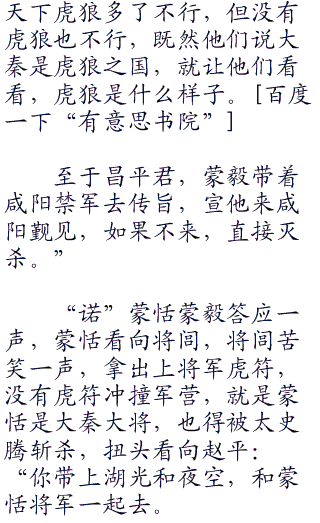 天下虎狼多了不行，但没有
虎狼也不行，既然他们说大
秦是虎狼之国，就让他们看
看，虎狼是什么样子。[百度
一下“有意思书院”]
至于昌平君，蒙毅带着
咸阳禁军去传旨，宣他来咸
阳觐见，如果不来，直接灭
杀。”
“诺”蒙恬蒙毅答应一
声，蒙恬看向将闾，将闾苦
笑一声，拿出上将军虎符，
没有虎符冲撞军营，就是蒙
恬是大秦大将，也得被太史
腾斩杀，扭头看向赵平：
“你带上湖光和夜空，和蒙
恬将军一起去。